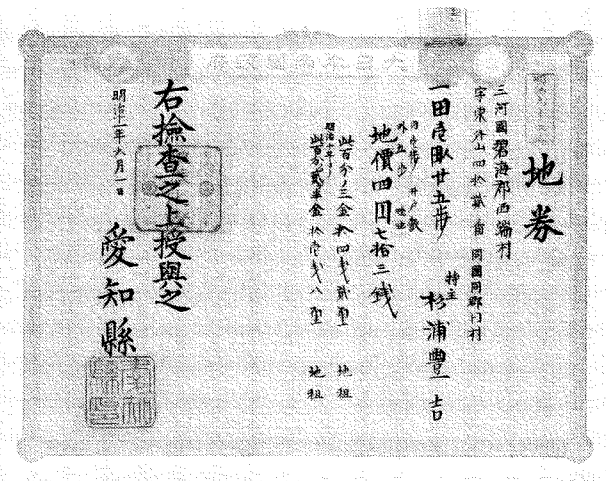 地券
三河國碧海郡西端村
字東外山四拾貳番 同國同郡同村
一田壱畝廿五歩 持主 杉浦豊吉
外五歩 畦畔
地價四円七拾三銭
此百分ノ三金拾四銭貳厘 地租
明治十年ヨリ
此百分ノ貳半金拾壱銭八厘 地租
右檢査之上授與之
明治十一年六月一日
愛知縣
大日本帝國政府